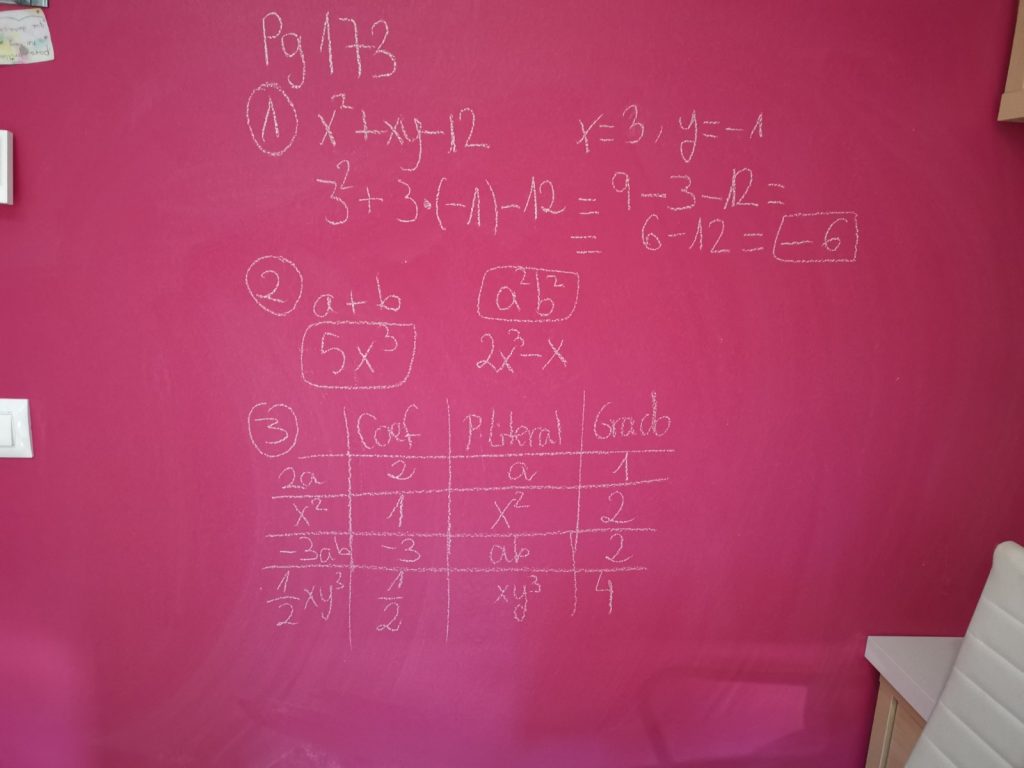 Pg 173
① x² + xy - 12 x = 3, y = -1
3² + 3·(-1) - 12 = 9 - 3 - 12 =
= 6 - 12 = -6
② a + b a²b²
5x³ 2x³ - x
③ Coef P.Literal Grado
2a 2 a 1
x² 1 x² 2
-3ab -3 ab 2
1/2 xy³ 1/2 xy³ 4